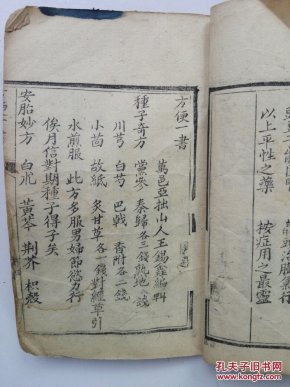 以上平性之藥　按症用之最靈
方便一書
萬邑亞拙山人王錫鑫編輯
種子奇方　當參　秦歸各三錢　熟地
川芎　白芍　巴戟　香附各二錢
小茴　故紙　炙甘草各一錢　對經草引
水煎服　此方多服男婦節慾力行
俟月信對期種子得子矣
安胎妙方　白朮　黃芩　荆芥　枳殼